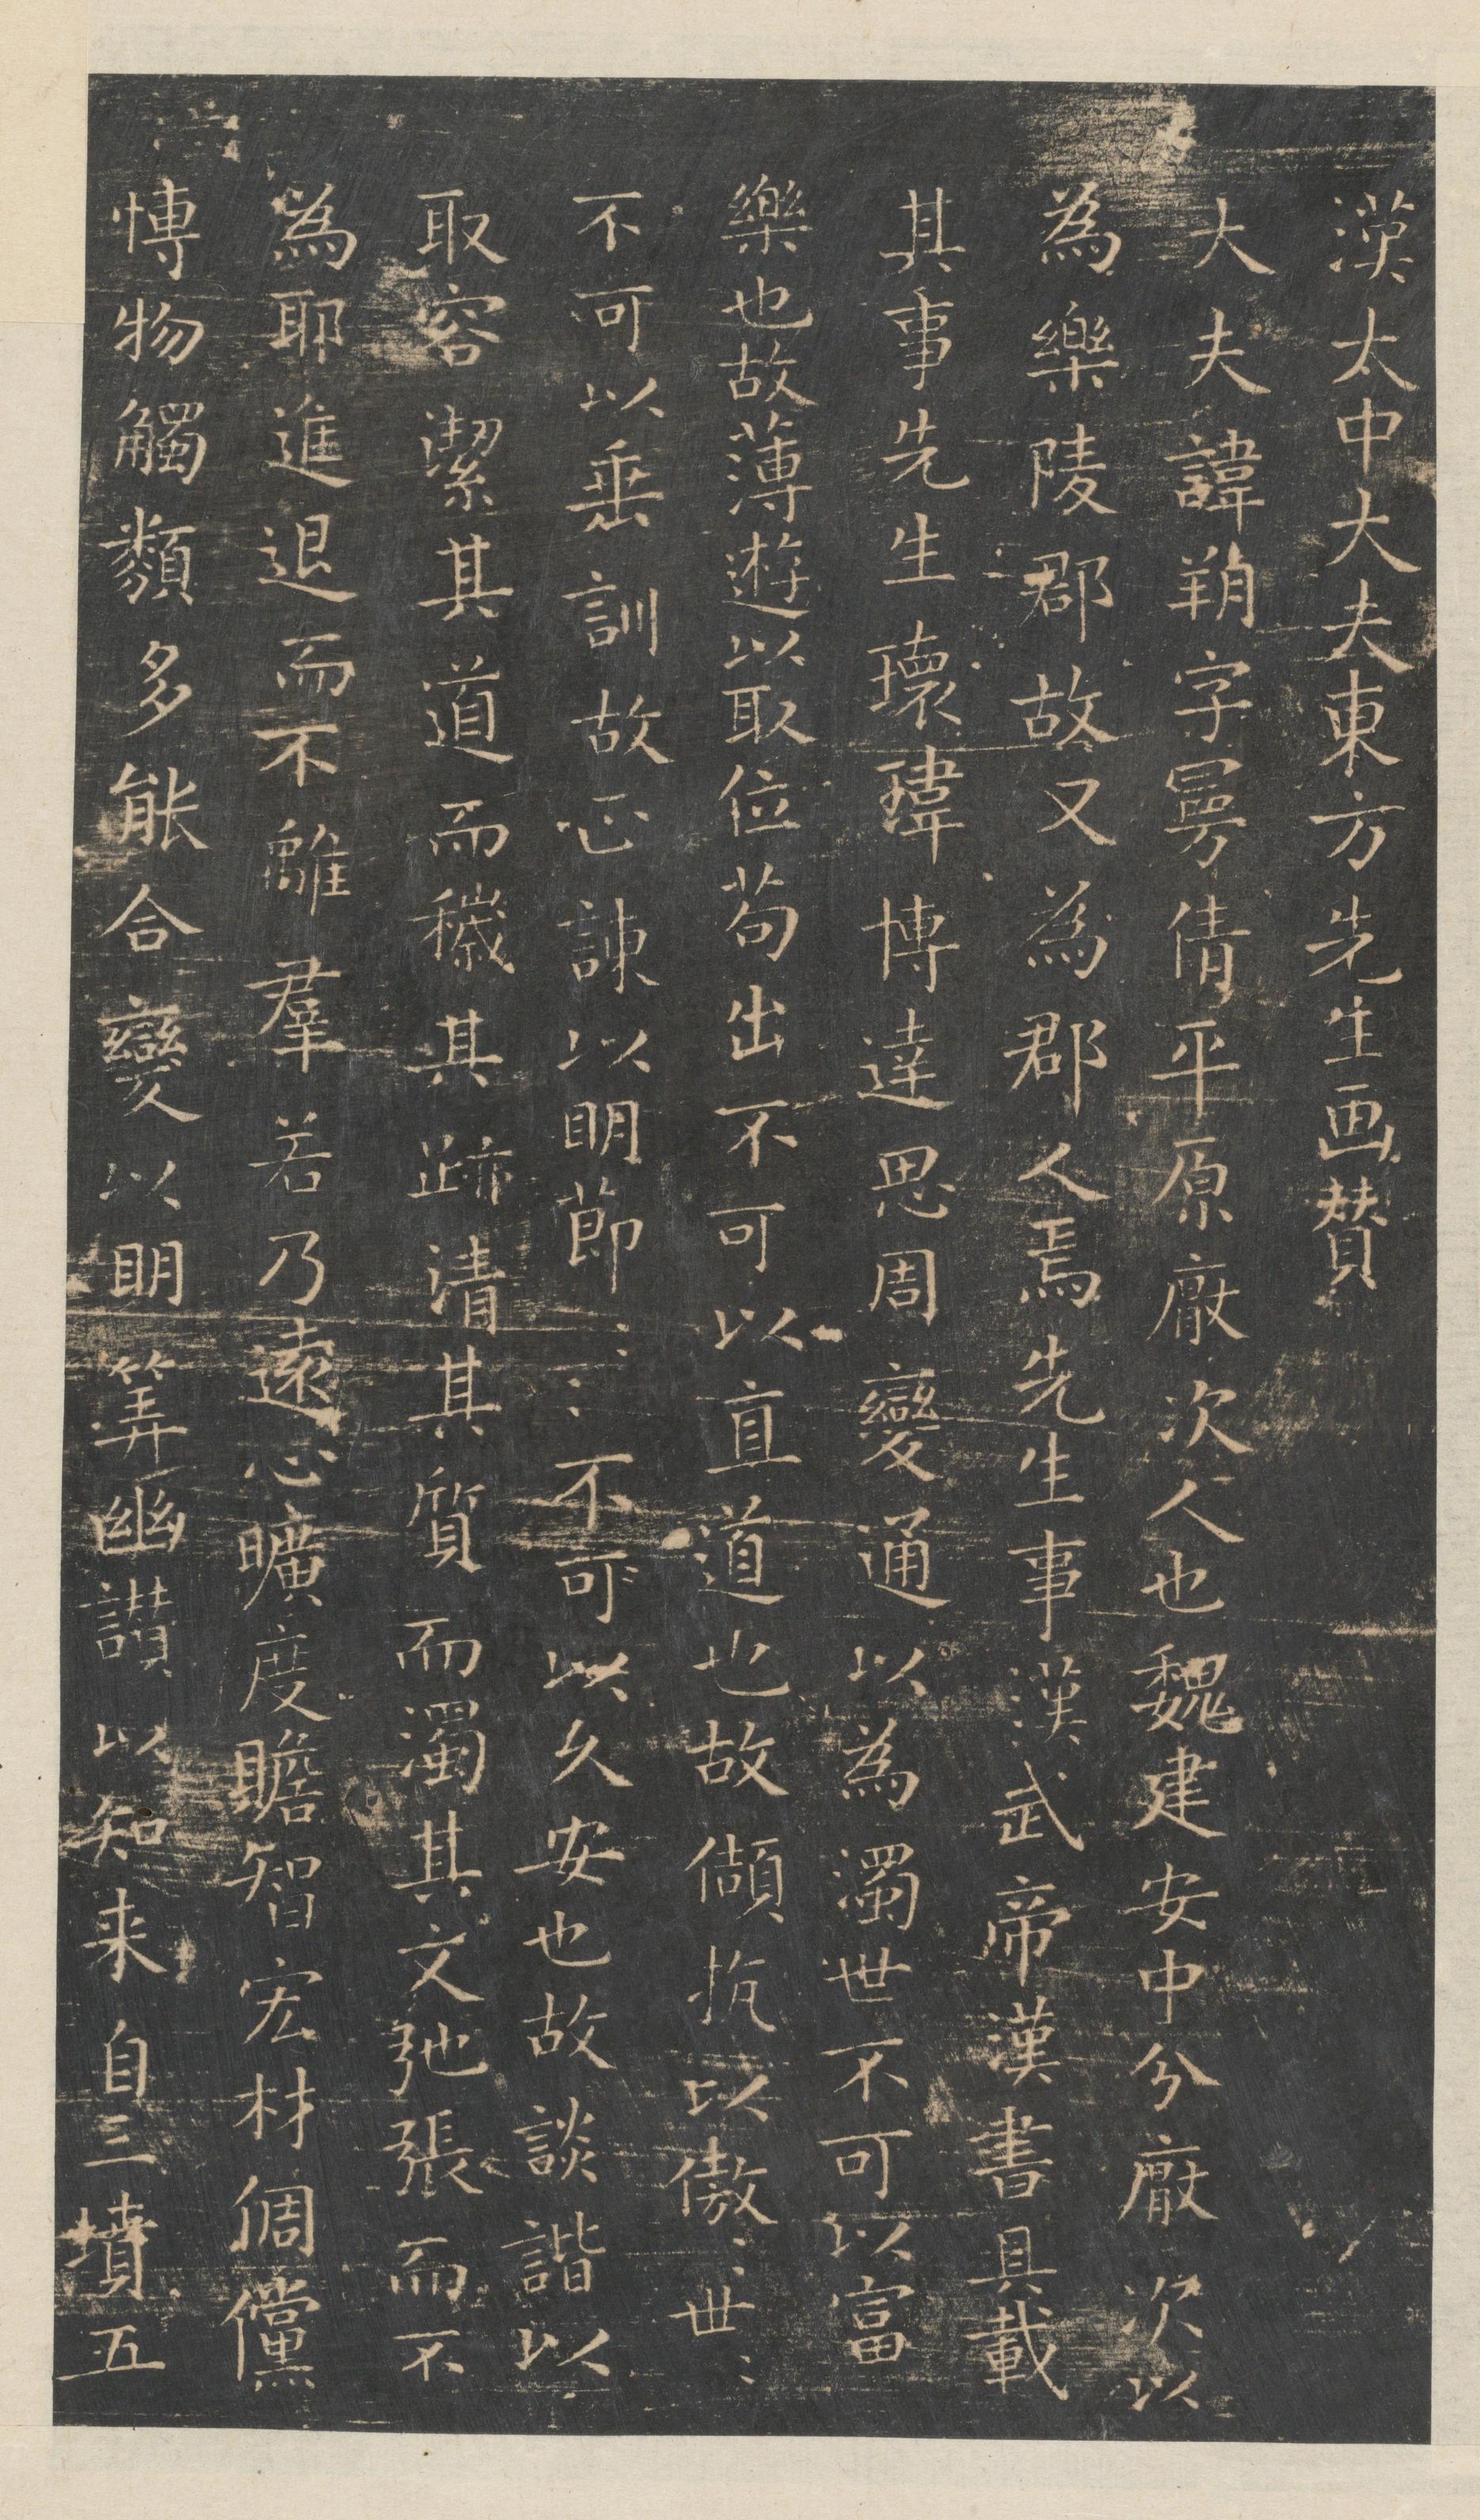 漢太中大夫東方先生画賛
大夫諱朔字曼倩平原厭次人也魏建安中分厭次以
為樂陵郡故又為郡人焉先生事漢武帝漢書具載
其事先生瓌瑋博達思周變通以為濁世不可以富
樂也故薄遊以取位苟出不可以直道也故傾抗以傲世〻
不可以垂訓故正諫以明節〻〻不可以久安也故談諧以
取容潔其道而穢其跡清其質而濁其文弛張而不
為耶進退而不離羣若乃遠心曠度瞻智宏材倜儻
博物觸類多能合變以明筭幽讃以知来自三墳五